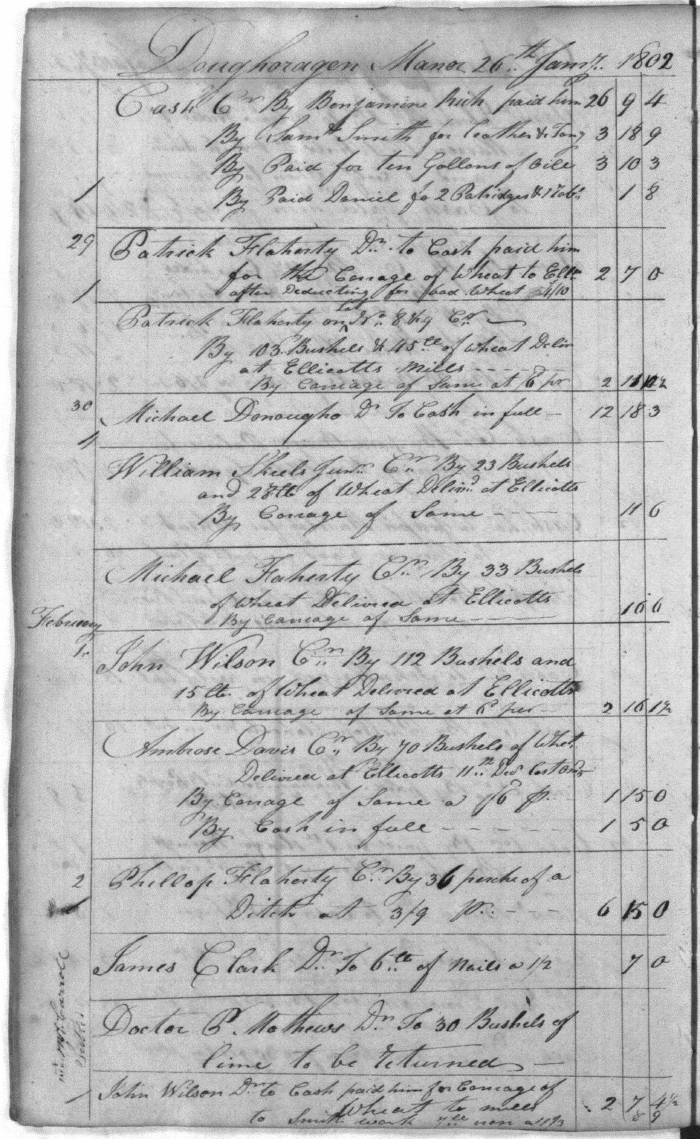 Doughoragen Manor 26th Jany. 1802
Cash Cr By Benjamine Rich paid him 26 9 4
By Saml Smith for Leather & Tang 3 18 9
By Paid for ten Gallons of Oile 3 10 3
1 By Paid Daniel for 2 Patridges & 1 1 8
29 Patrick Flaherty Dr to Cash paid him
for the Carrage of Wheat to Ellts 2 7 0
1 after Deducting for bad Wheat
Patrick Flaherty on Lot No 8 & 9 Cr
By 103 Bushels & 45lt of Wheat Delivr
at Ellicotts Mills
By Carriage of Same at 6 pr 2 11
30 Michael Donaugho Dr To Cash in full 12 18 3
4
William Skeels Junr Cr By 23 Bushels
and 28lt of Wheat Delivrd at Ellicotts
By Carrage of Same 11 6
Michael Flaherty Cr By 33 Bushels
of Wheat Delivred at Ellicotts
By Carriage of Same 16 6
February
1 John Wilson Cr By 112 Bushels and
15lt of Wheat Delivred at Ellicotts
By Carriage of Same at 6 per 2 16
Ambrose Davis Cr By 70 Bushels of Whet
Delivred at Ellicotts 11th Decr Last
By Carrage of Same a /6 p 1 15 0
By Cash in full 1 5 0
2 Phillop Flaherty Cr By 36 perche of a
Ditch at 3/9 p 6 15 0
James Clark Dr To 6lt of Nails a 1/2 7 0
Doctor P. Mathews Dr To 30 Bushels of
lime to be returned
Carroll
1 John Wilson Dr to Cash paid him for Carrage of 2 7 4½
Wheat to mills
to Smith work 8 9